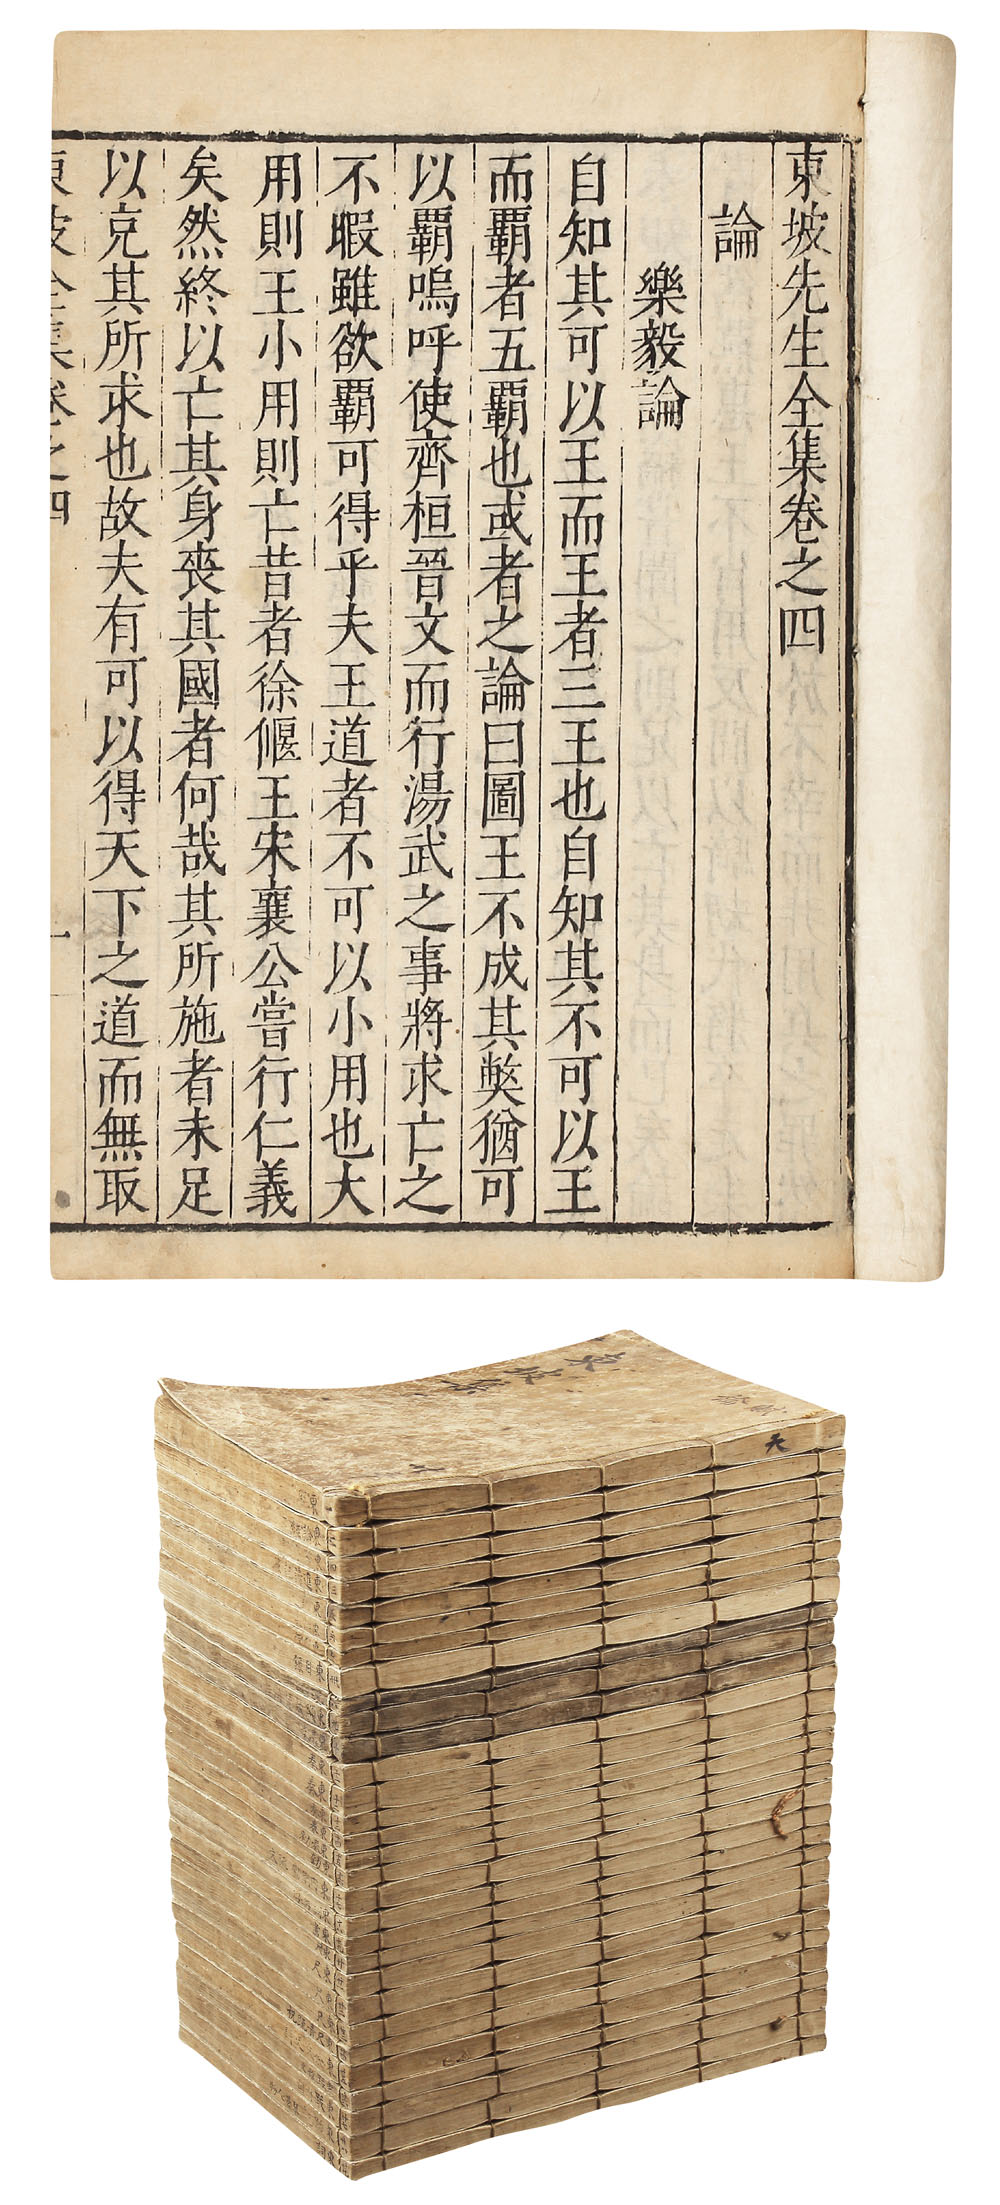 東坡先生全集卷之四
論
樂毅論
自知其可以王而王者三王也自知其不可以王
而霸者五霸也或者之論曰圖王不成其獘猶可
以霸嗚呼使齊桓晉文而行湯武之事將求亡之
不暇雖欲霸可得乎夫王道者不可以小用也大
用則王小用則亡昔者徐偃王宋襄公嘗行仁義
矣然終以亡其身喪其國者何哉其所施者未足
以克其所求也故夫有可以得天下之道而無取
東坡全集卷之四
一
東坡集
天